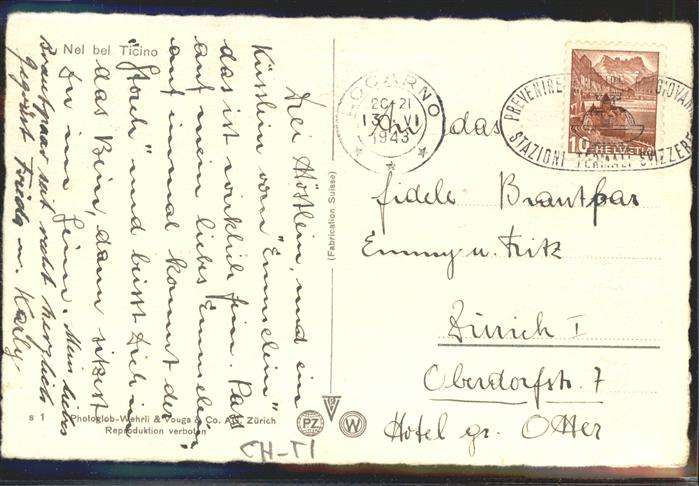 Nel bel Ticino
Bei Höstlein, und ein
Küsslein vom "Emmelein"
das ist wirklich fein. Pass
auf mein liebes Emmelein
auf einmal kommt der
"Storch" und beisst Dich in
das Bein, dann sitzest
Du im Heim. Mein liebes
Brautpaar seid recht herzlich
gegrüsst Frieda u. Karly
s 1
Photoglob-Wehrli & Vouga & Co. A.G. Zürich
Reproduktion verboten
CH-TI
(Fabrication Suisse)
PZ
W
LOCARNO
20-21
13.VI
1943
PREVENIRE
GIOVA
STAZIONI TERMALI SVIZZERE
10 HELVETIA
An das
fidele Brautpar
Emmy u. Fritz
Zürich I
Oberdorfstr. 7
Hotel gr. Otter